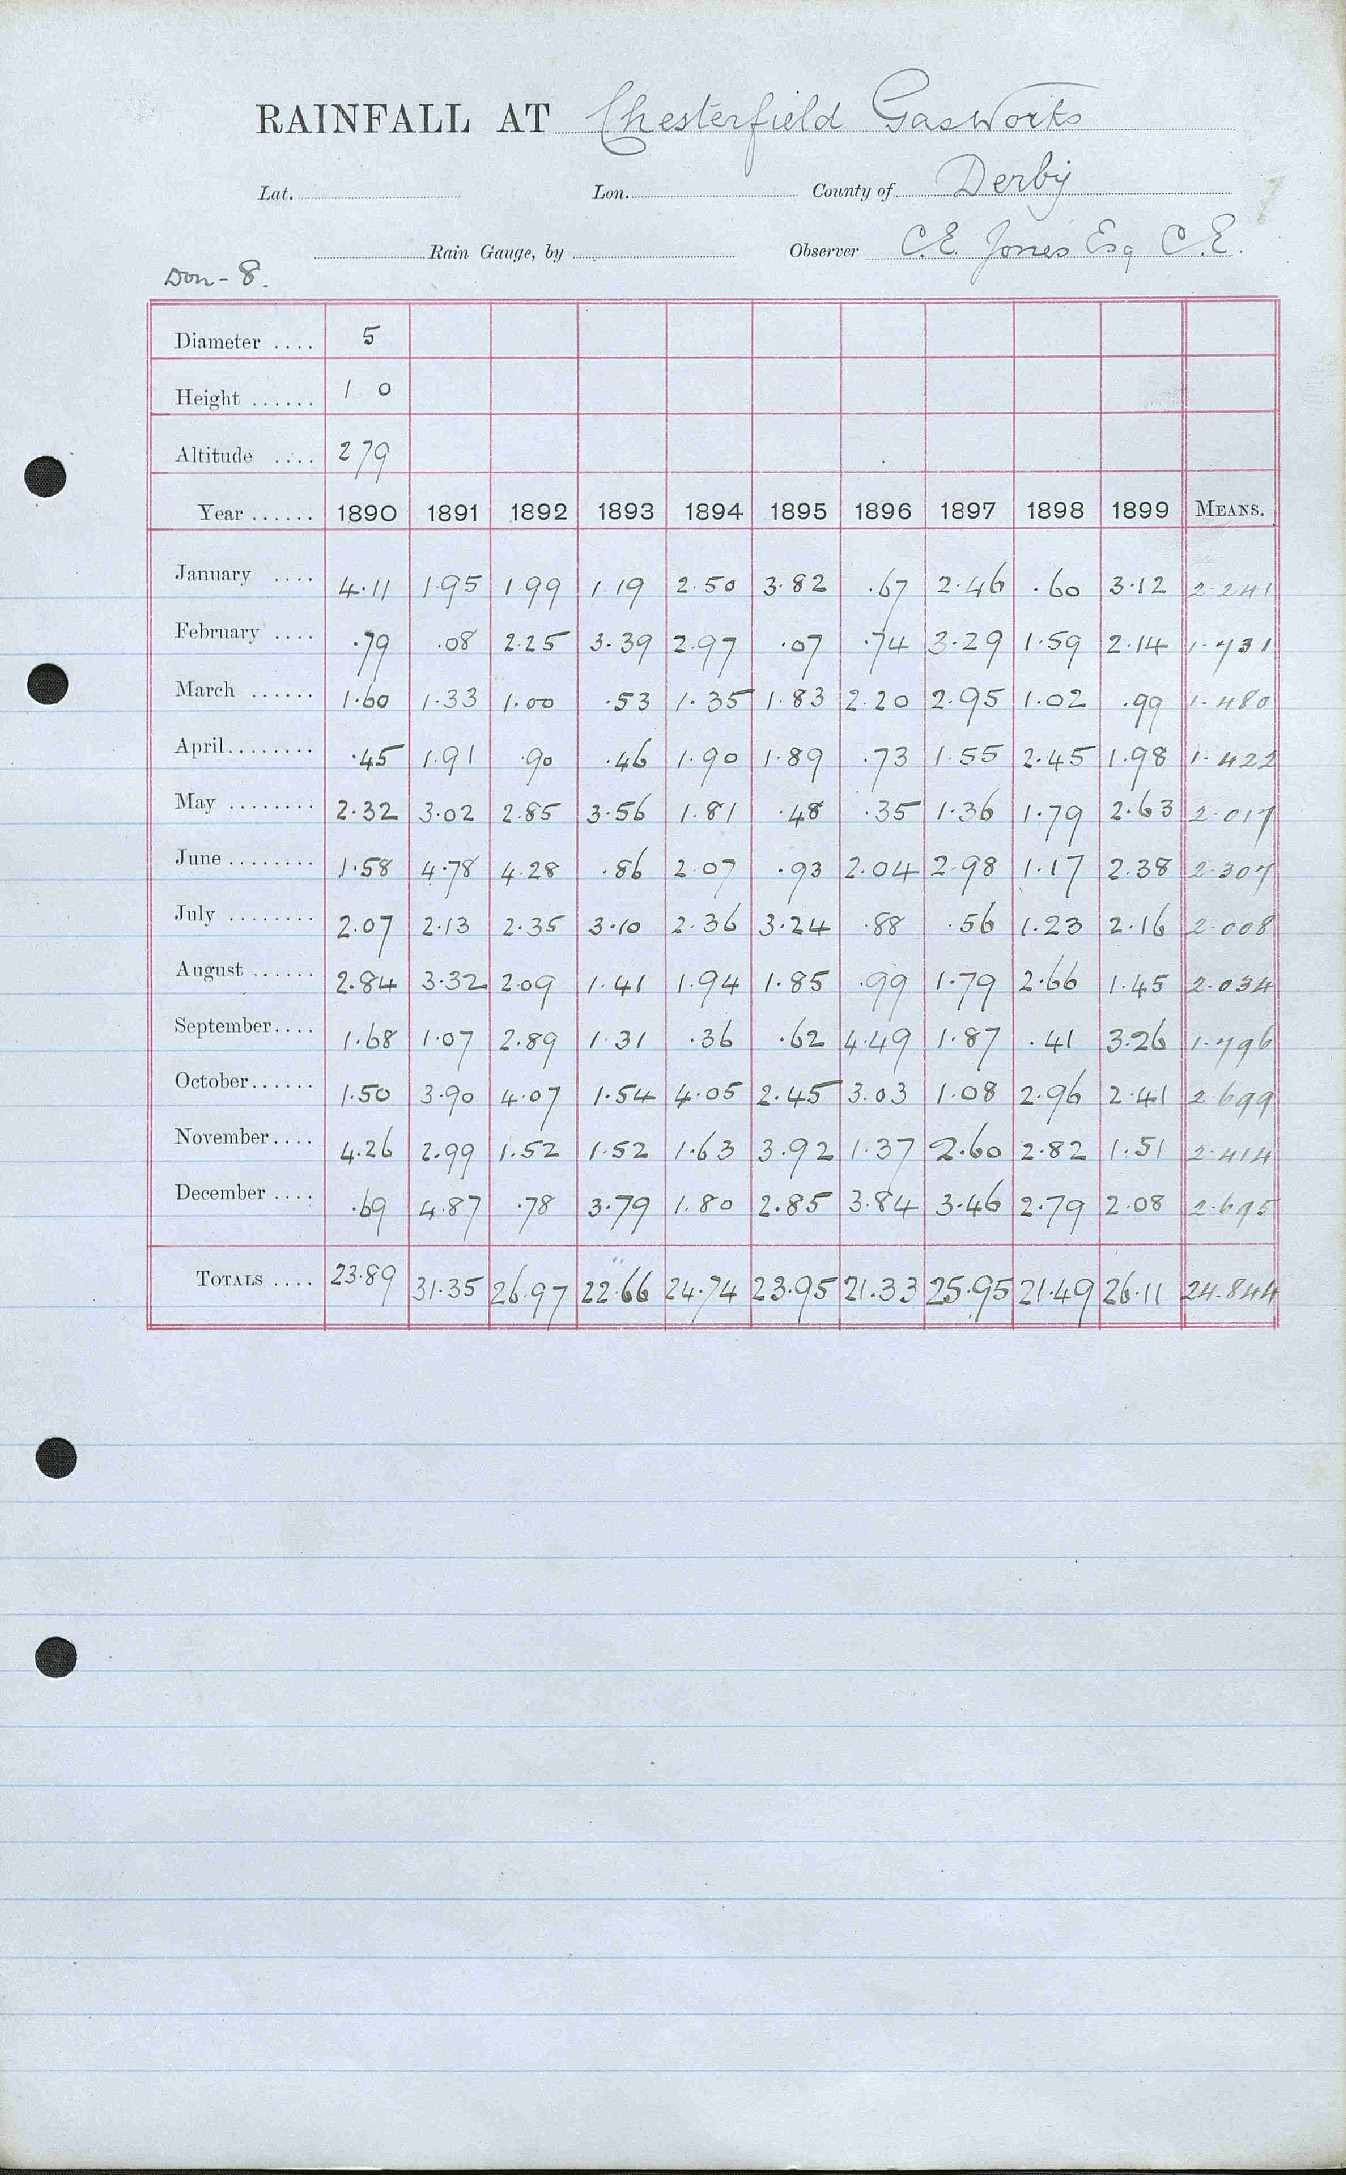 RAINFALL AT Chesterfield Gas Works
Lat. Lon. County of Derby
Rain Gauge, by Observer C.E. Jones Esq C.E.
Don - 8.
Diameter .... 5
Height ...... 1 0
Altitude .... 279
Year ...... 1890 1891 1892 1893 1894 1895 1896 1897 1898 1899 MEANS.
January .... 4.11 1.95 1.99 1.19 2.50 3.82 .67 2.46 .60 3.12 2.241
February .... .79 .08 2.25 3.39 2.97 .07 .74 3.29 1.59 2.14 1.731
March ...... 1.60 1.33 1.00 .53 1.35 1.83 2.20 2.95 1.02 .99 1.480
April ........ .45 1.91 .90 .46 1.90 1.89 .73 1.55 2.45 1.98 1.422
May ........ 2.32 3.02 2.85 3.56 1.81 .48 .35 1.36 1.79 2.63 2.017
June ........ 1.58 4.78 4.28 .86 2.07 .93 2.04 2.98 1.17 2.38 2.307
July ........ 2.07 2.13 2.35 3.10 2.36 3.24 .88 .56 1.23 2.16 2.008
August ...... 2.84 3.32 2.09 1.41 1.94 1.85 .99 1.79 2.66 1.45 2.034
September.... 1.68 1.07 2.89 1.31 .36 .62 4.49 1.87 .41 3.26 1.796
October...... 1.50 3.90 4.07 1.54 4.05 2.45 3.03 1.08 2.96 2.41 2.699
November.... 4.26 2.99 1.52 1.52 1.63 3.92 1.37 2.60 2.82 1.51 2.414
December .... .69 4.87 .78 3.79 1.80 2.85 3.84 3.46 2.79 2.08 2.695
TOTALS .... 23.89 31.35 26.97 22.66 24.74 23.95 21.33 25.95 21.49 26.11 24.844